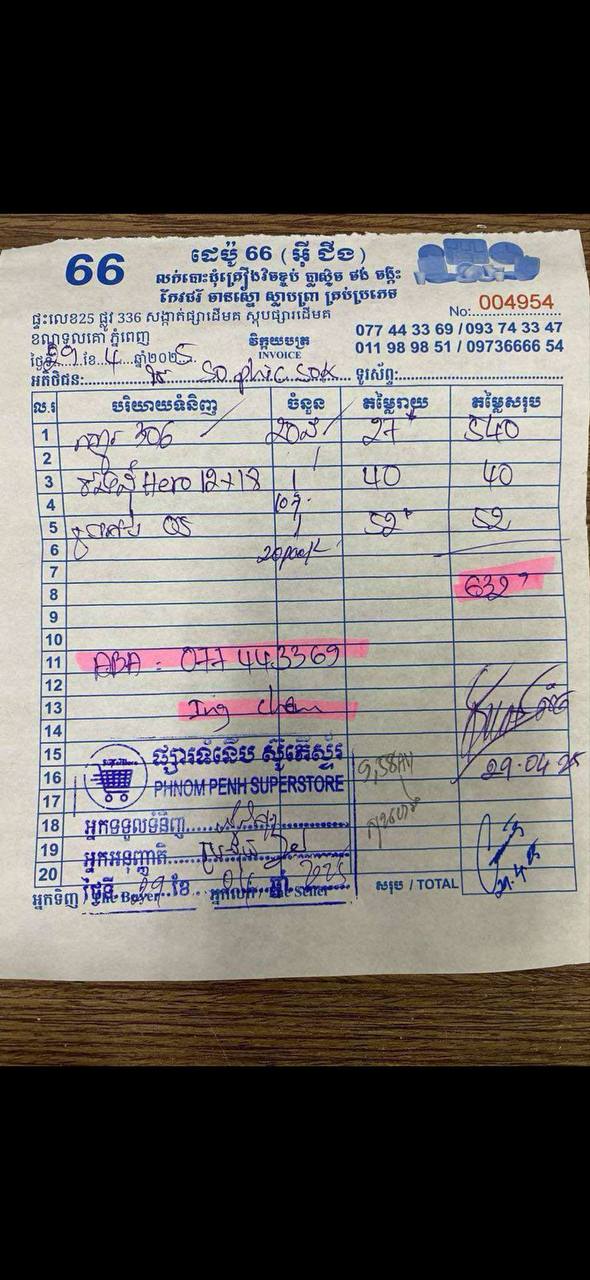 66
ដេប៉ូ 66 ( អ៊ី ជីង )
លក់បោះដុំគ្រឿងវេចខ្ចប់ ប្លាស្ទិច ថង់ ចង្កឹះ
កែវជ័រ ចានស្នោ ស្លាបព្រា គ្រប់ប្រភេទ
No: 004954
ផ្ទះលេខ25 ផ្លូវ 336 សង្កាត់ផ្សារដើមគ ស្តុបផ្សារដើមគ
ខណ្ឌទួលគោ ភ្នំពេញ
077 44 33 69 / 093 74 33 47
វិក្កយបត្រ
INVOICE
011 98 98 51 / 09736666 54
ថ្ងៃ 29 ខែ 4 ឆ្នាំ២០25
អតិថិជន: sophic sok ទូរស័ព្ទ:
ល.រ បរិយាយទំនិញ ចំនួន តម្លៃរាយ តម្លៃសរុប
1 306 20 27 540
2
3 Hero 12+18 1 40 40
4
5 05 1 52 52
6 20pack
7
8 632
9
10
11 ABA : 077 44 33 69
12
13 Ing chem
14
15 ផ្សារទំនើប ស៊ូភើស្ទ័រ
16 PHNOM PENH SUPERSTORE 29.04.25
17
18 អ្នកទទួលទំនិញ
19 អ្នកអនុញ្ញាតិ
20 ថ្ងៃទី 29 ខែ 04 ឆ្នាំ 2025 សរុប / TOTAL
អ្នកទិញ / The Buyer អ្នកលក់ / The Seller